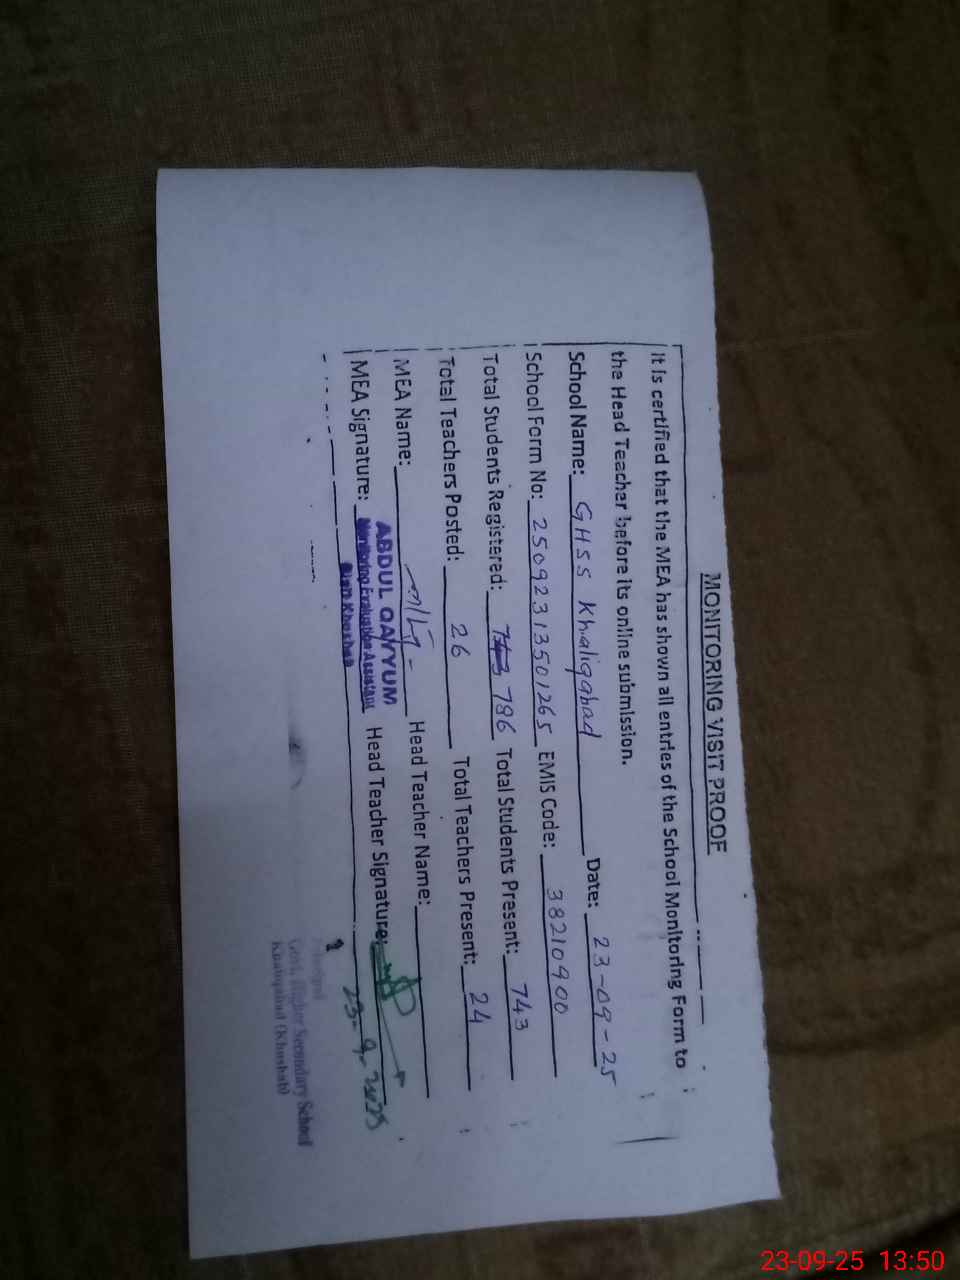 MONITORING VISIT PROOF
It is certified that the MEA has shown all entries of the School Monitoring Form to
the Head Teacher before its online submission.
School Name: GHSS Khaliqabad Date: 23-09-25
School Form No: 25092313501265 EMIS Code: 38210900
Total Students Registered: 743 786 Total Students Present: 743
Total Teachers Posted: 26 Total Teachers Present: 24
MEA Name: Head Teacher Name:
ABDUL QAYYUM
MEA Signature: Monitoring Evaluation Assistant Head Teacher Signature:
Distt Khushab
23-9-2025
Principal
Govt. Higher Secondary School
Khaliqabad (Khushab)
23-09-25 13:50